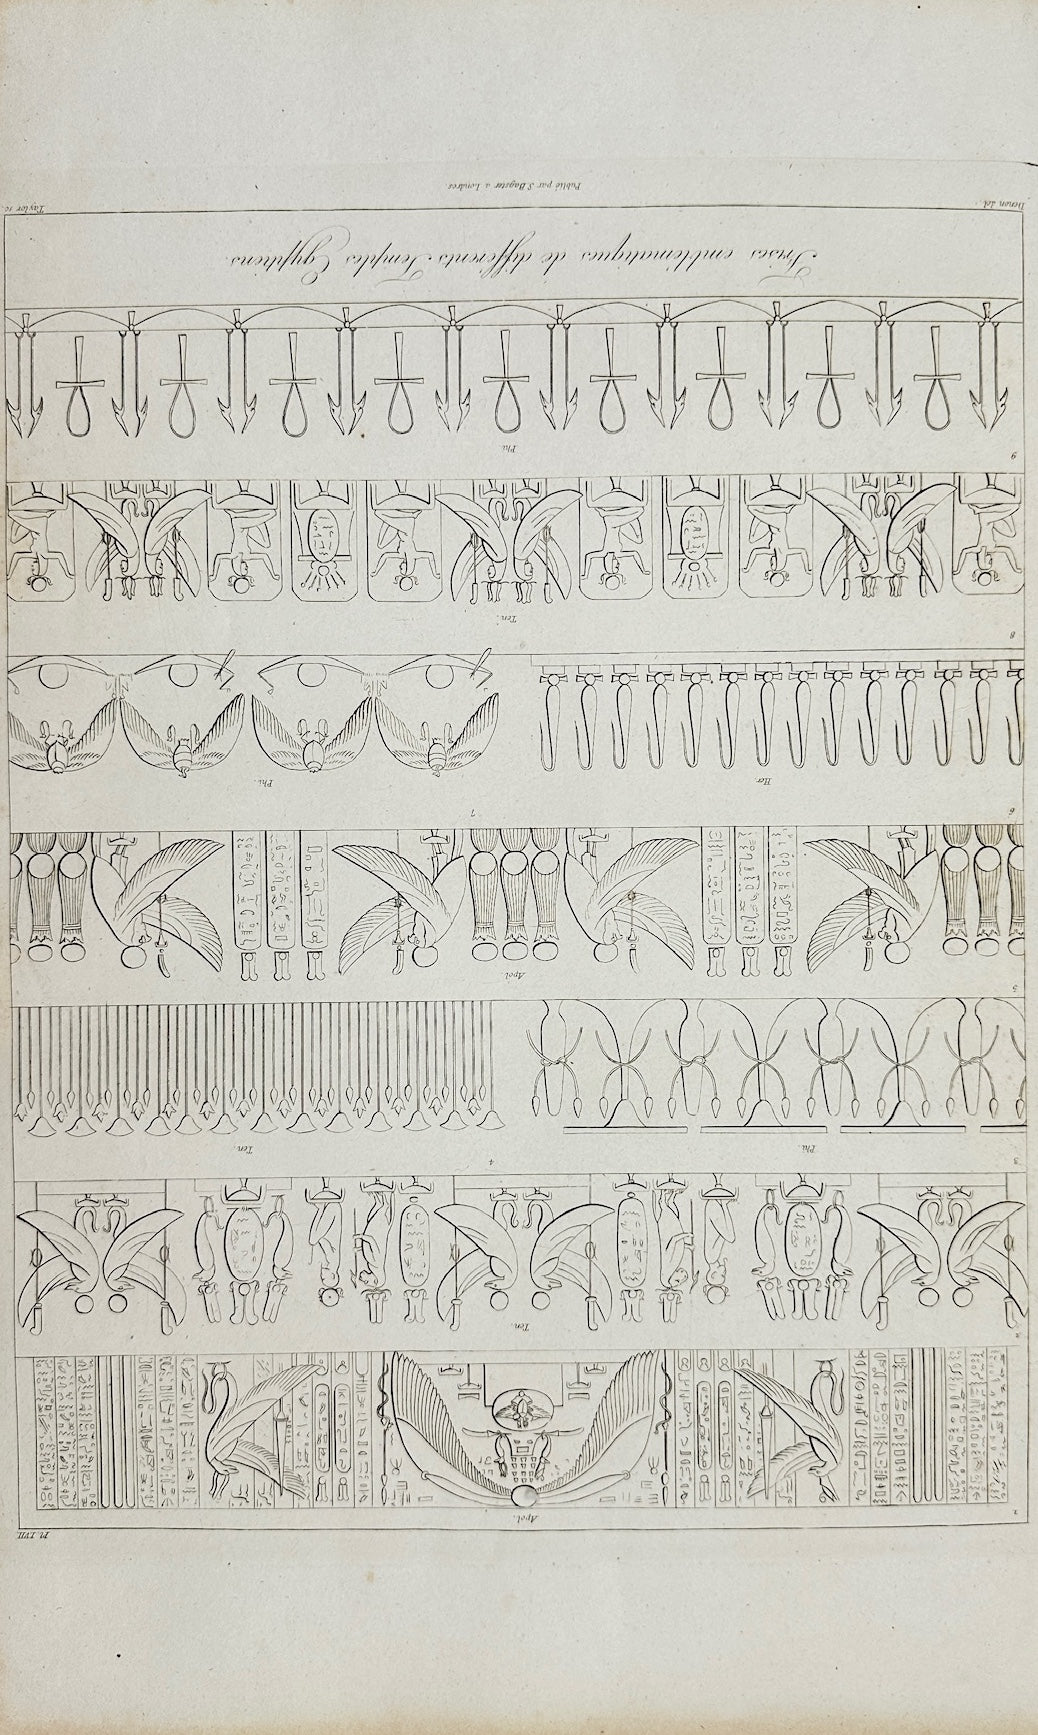 Pl. LVII.
Apol.
2
Ten.
Phi.
3
Ten.
4
Apol.
5
Her
6
Phi.
7
Ten.
8
Phi.
9
Frises emblèmatiques de différents Temples Egyptiens.
Denon del.
Taylor sc.
Publié par S. Bagster a Londres